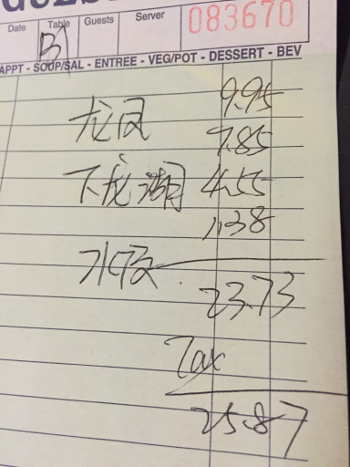 Date Table Guests Server
B1
083670
APPT - SOUP/SAL - ENTREE - VEG/POT - DESSERT - BEV
9.95
龙凤
7.85
下龙湖 4.55
1.38
23.73
Tax
25.87